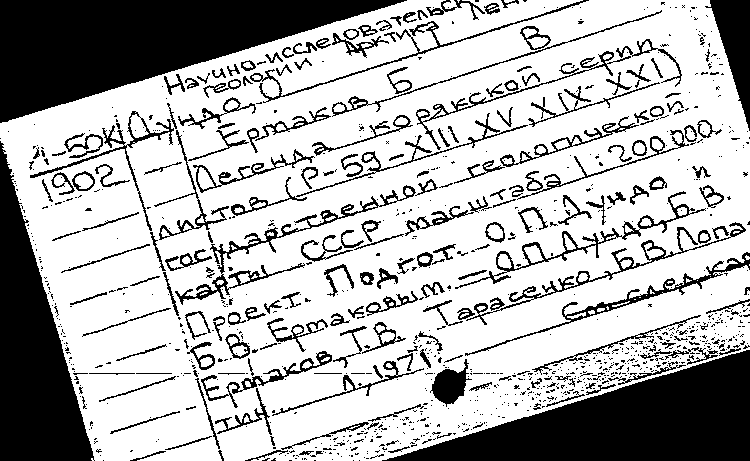 Научно-исследовательск
геологии Арктики Лен
Л-50К Дундо, О П
1902 Ермаков, Б В
Легенда корякской серии
листов (Р-59-XIII, XV, XIX, XXI)
государственной геологической
карты СССР масштаба 1:200 000
Проект. Подгот. О.П. Дундо и
Б.В. Ермаковым. – О.П. Дундо, Б.В.
Ермаков, Т.В. Тарасенко, Б.В. Лопа-
тин... Л., 1971
См. след. кар